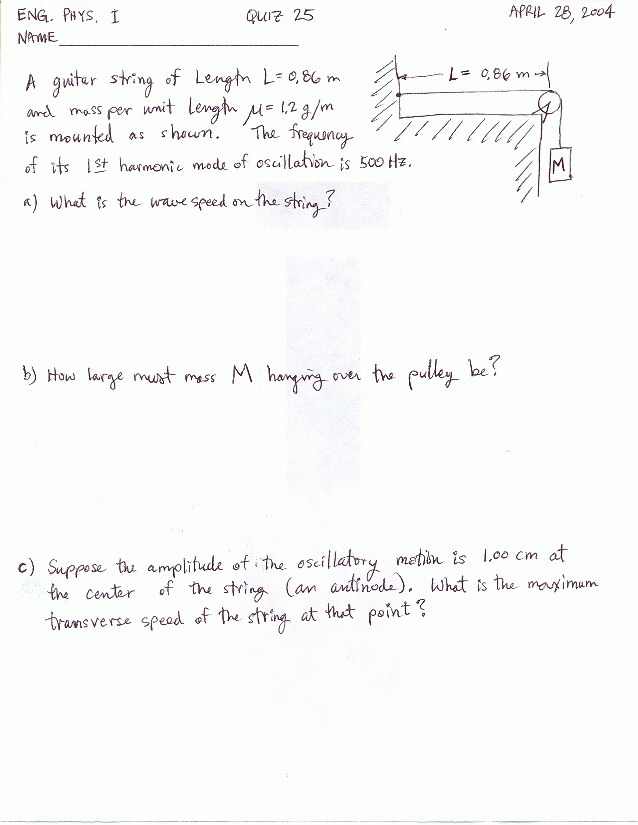 ENG. PHYS. I QUIZ 25 APRIL 28, 2004
NAME
A guitar string of Length L = 0.86 m
and mass per unit length μ = 1.2 g/m
is mounted as shown. The frequency
of its 1st harmonic mode of oscillation is 500 Hz.
L = 0.86 m
M
a) What is the wave speed on the string?
b) How large must mass M hanging over the pulley be?
c) Suppose the amplitude of the oscillatory motion is 1.00 cm at
the center of the string (an antinode). What is the maximum
transverse speed of the string at that point?